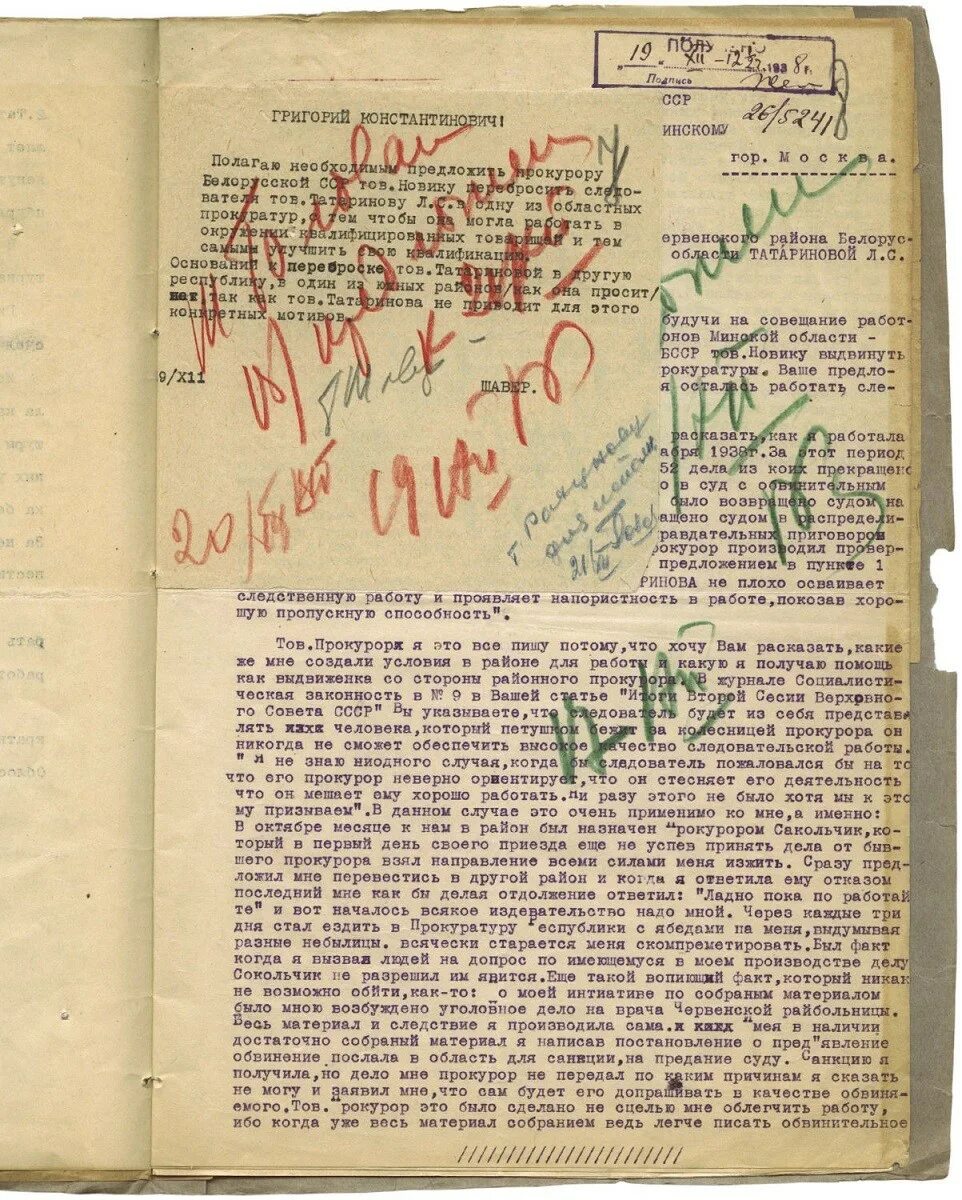 ПОЛУ
"19" XII 1938 г.
Подпись
26/5241
ССР
ИНСКОМУ
гор. М о с к в а.
ГРИГОРИЙ КОНСТАНТИНОВИЧ!
Полагаю необходимым предложить прокурору
Белорусской ССР тов.Новику перебросить следо-
вателя тов.Татаринову Л.С.в одну из областных
прокуратур,с тем чтобы она могла работать в
окружении квалифицированных товарищей и тем
самыми улучшить свою квалификацию.
Оснований к переброске тов.Татариновой в другую
республику,в один из южных районов/как она просит/
нет так как тов.Татаринова не приводит для этого
конкретных мотивов.
9/XII
ШАВЕР.
20/XII
21/XII
ервенского района Белорус-
области ТАТАРИНОВОЙ Л.С.
будучи на совещание работ-
онов Минской области -
БССР тов.Новику выдвинуть
рокуратуры. Ваше предло-
я осталась работать сле-
расказать,как я работала
абря 1938г.За этот период
52 дела из коих прекращено
о в суд с обвинительным
было возвращено судом на
ащено судом в распредели-
равдательных приговором
рокурор производил провер-
предложением в пункте 1
РИНОВА не плохо осваивает
следственную работу и проявляет напористность в работе,покозав хоро-
шую пропускную способность".
Тов.Прокурорж я это все пишу потому,что хочу Вам расказать,какие
же мне создали условия в районе для работы и какую я получаю помощь
как выдвиженка со стороны районного прокурора. В журнале Социалисти-
ческая законность в № 9 в Вашей статье "Итоги Второй Сесии Верховно-
го Совета СССР" Вы указываете,что следователь будет из себя представ
лять человека,который петушном бежит за колесницей прокурора он
никогда не сможет обеспечить высокое качество следовательской работы.
" Я не знаю ниодного случая,когда бы следователь пожаловался бы на то
что его прокурор неверно ориентирует,что он стесняет его деятельность
что он мешает ему хорошо работать.Ни разу этого не было хотя мы к это
му призываем".В данном случае это очень применимо ко мне,а именно:
В октябре месяце к нам в район был назначен Прокурором Сакольчик,ко-
торый в первый день своего приезда еще не успев принять дела от быв-
шего прокурора взял направление всеми силами меня изжить. Сразу пред-
ложил мне перевестись в другой район и когда я ответила ему отказом
последний мне как бы делая отдолжение ответил: "Ладно пока по работай
те" и вот началось всякое издевательство надо мной. Через каждые три
дня стал ездить в Прокуратуру Республики с ябедами на меня,выдумывая
разные небылицы. всячески старается меня скомпреметировать.Был факт
когда я вызвал людей на допрос по имеющемуся в моем производстве делу
Сокольчик не разрешил им явится.Еще такой вопиющий факт,который никак
не возможно обйти,как-то: По моей интиативе по собраным материалом
было мною возбуждено уголовное дело на врача Червенской райбольницы.
Весь материал и следствие я производила сама. Имея в наличии
достаточно собраный материал я написав постановление о пред"явление
обвинение послала в область для санкции,на предание суду. Санкцию я
получила,но дело мне прокурор не передал по каким причинам я сказать
не могу и заявил мне,что сам будет его допрашивать в качестве обвиня-
емого.Тов. Прокурор это было сделано не сцелью мне облегчить работу,
ибо когда уже весь материал собранием ведь легче писать обвинительное